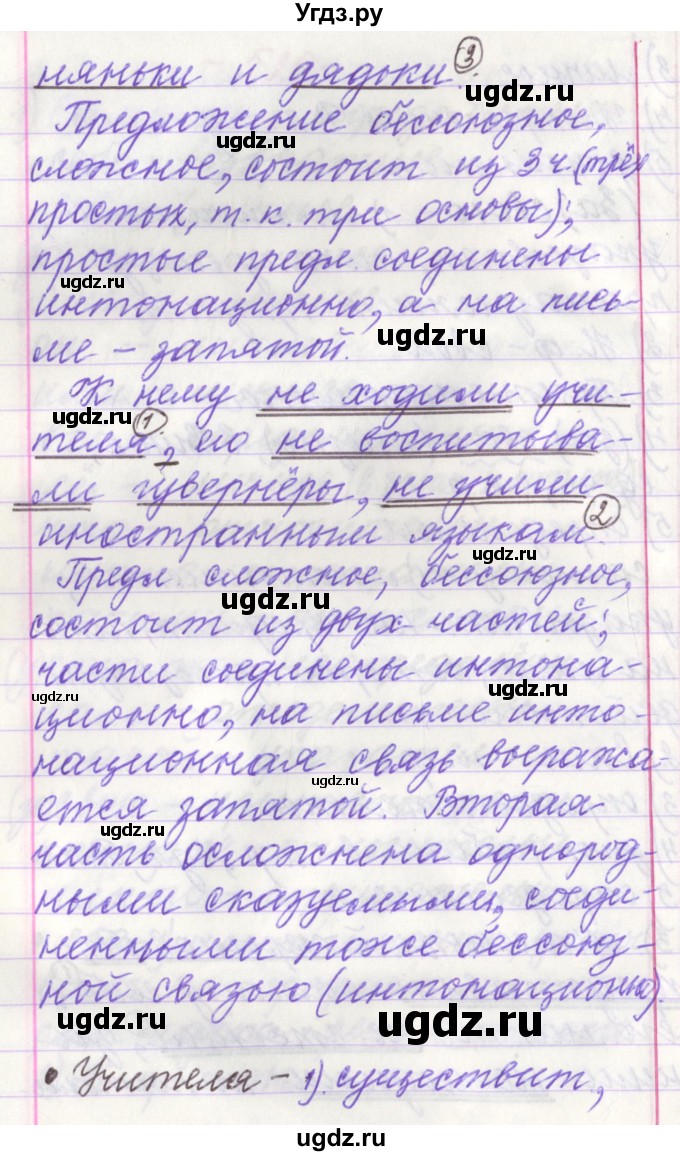 Угдз.ру
няньки и дядьки ③.
Предложение бессоюзное,
ugdz.ru
сложное, состоит из 3 ч. (трёх
простых, т. к. три основы);
ugdz.ru
простые предл. соединены
ugdz.ru
интонационно, а на пись-
ugdz.ru
ме – запятой.
К нему не ходили учи-
ugdz.ru
теля ①, его не воспитыва-
ли гувернёры, не учили
иностранным языкам ②.
ugdz.ru
Предл. сложное, бессоюзное,
ugdz.ru
состоит из двух частей;
части соединены интона-
ugdz.ru
ugdz.ru
ционно, на письме инто-
национная связь выража-
ugdz.ru
ется запятой. Вторая
ugdz.ru
часть осложнена однород-
ными сказуемыми, соеди-
ненными тоже бессоюз-
ной связью (интонационно).
ugdz.ru
ugdz.ru
• Учителя – 1) существит.,
ugdz.ru